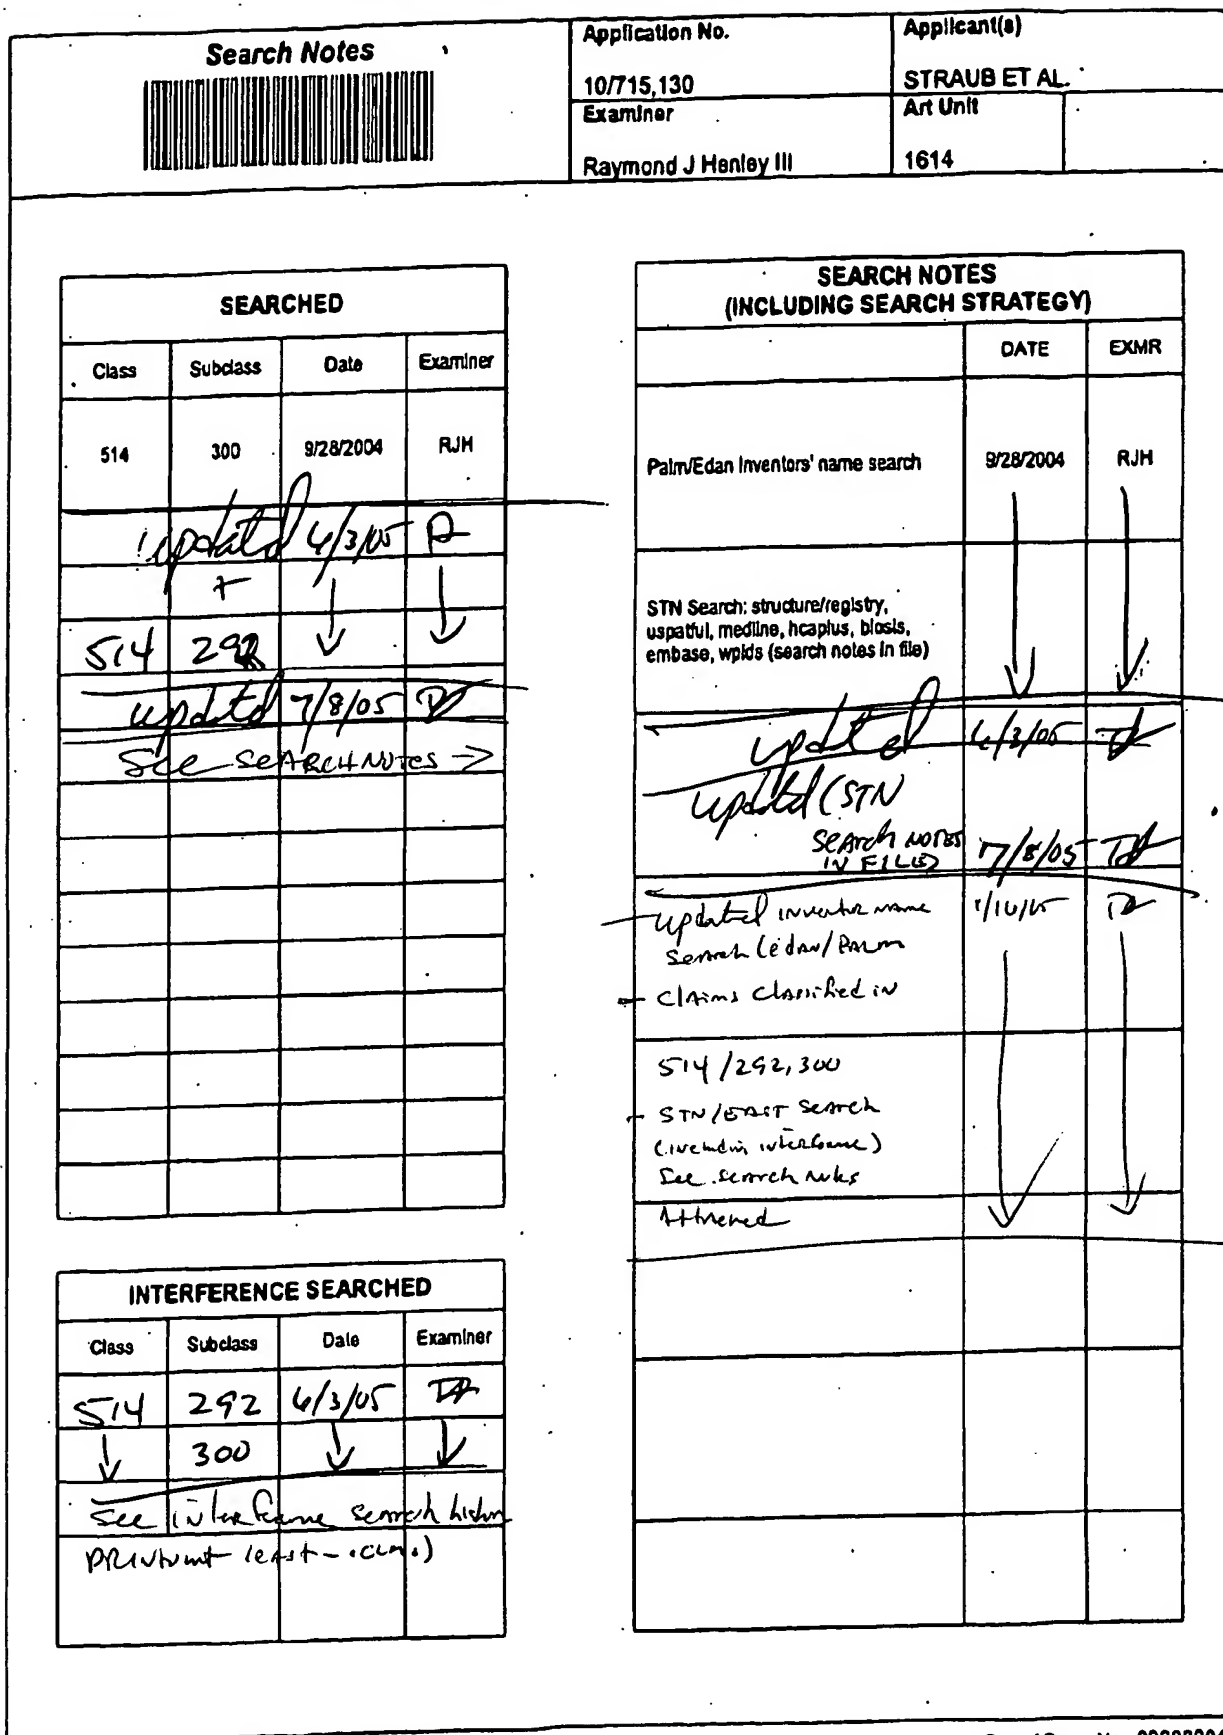 Search Notes
Application No.
10/715,130
Applicant(s)
STRAUB ET AL.
Examiner
Raymond J Henley III
Art Unit
1614
SEARCHED
Class Subclass Date Examiner
514 300 9/28/2004 RJH
updated
+
514 292
updated 7/8/05
See SEARCH NOTES →
INTERFERENCE SEARCHED
Class Subclass Date Examiner
514 292
300
See interference search
SEARCH NOTES
(INCLUDING SEARCH STRATEGY)
DATE EXMR
Palm/Edan Inventors' name search 9/28/2004 RJH
STN Search: structure/registry,
uspatful, medline, hcaplus, biosis,
embase, wpids (search notes in file)
updated
updated (STN
SEARCH NOTES
IN FILE) 7/8/05
- updated inventor name
Search (edan/PALM
- Claims Classified in
514/292,300
- STN/EAST Search
See search notes
Attached